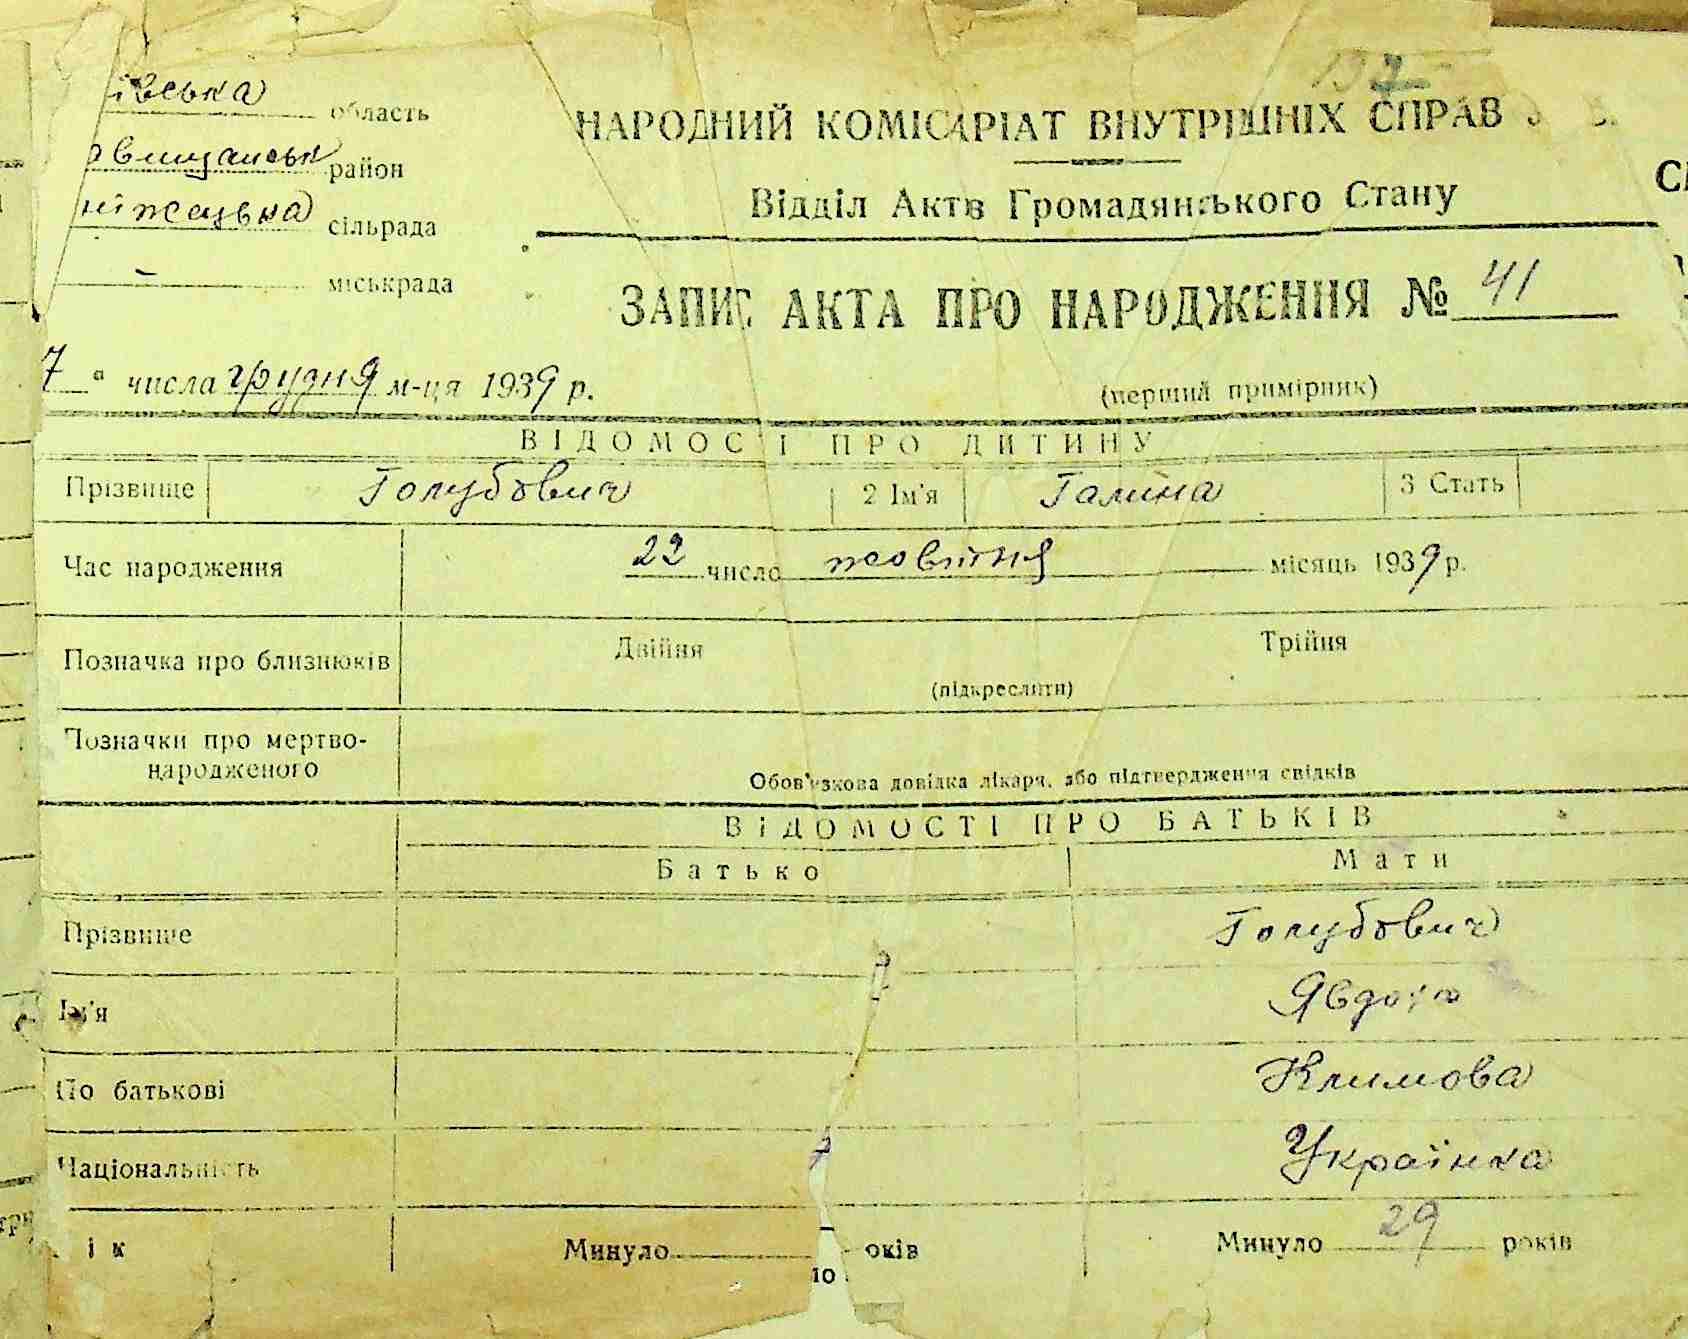 івська область
авищанськ район
ніжацька сільрада
міськрада
НАРОДНИЙ КОМІСАРІАТ ВНУТРІШНІХ СПРАВ
Відділ Актів Громадянського Стану
ЗАПИС АКТА ПРО НАРОДЖЕННЯ № 41
7 " числа грудня м-ця 1939 р.
(перший примірник)
ВІДОМОСТІ ПРО ДИТИНУ
Прізвище Голубович 2 Ім'я Галина 3 Стать
Час народження 22 число жовтня місяць 1939 р.
Позначка про близнюків Двійня Трійня
(підкреслити)
Позначки про мертво-
народженого
Обов'язкова довідка лікаря, або підтвердження свідків
ВІДОМОСТІ ПРО БАТЬКІВ
Батько Мати
Прізвище Голубович
Ім'я Явдоха
По батькові Климова
Національність Українка
ік Минуло років Минуло 29 років